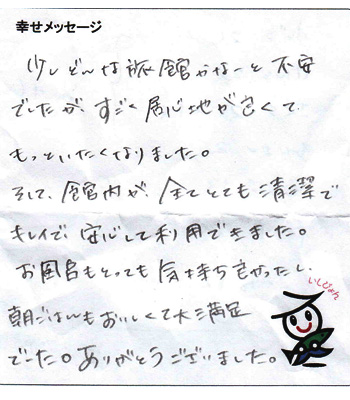 幸せメッセージ
少しどんな旅館かなーと不安
でしたが、すごく居心地が良くて
もっといたくなりました。
そして、館内が、全てとても清潔で
キレイで、安心して利用できました。
お風呂もとっても気持ち良かったし、
いしじょん
朝ごはんもおいしくて大満足
でした。ありがとうございました。